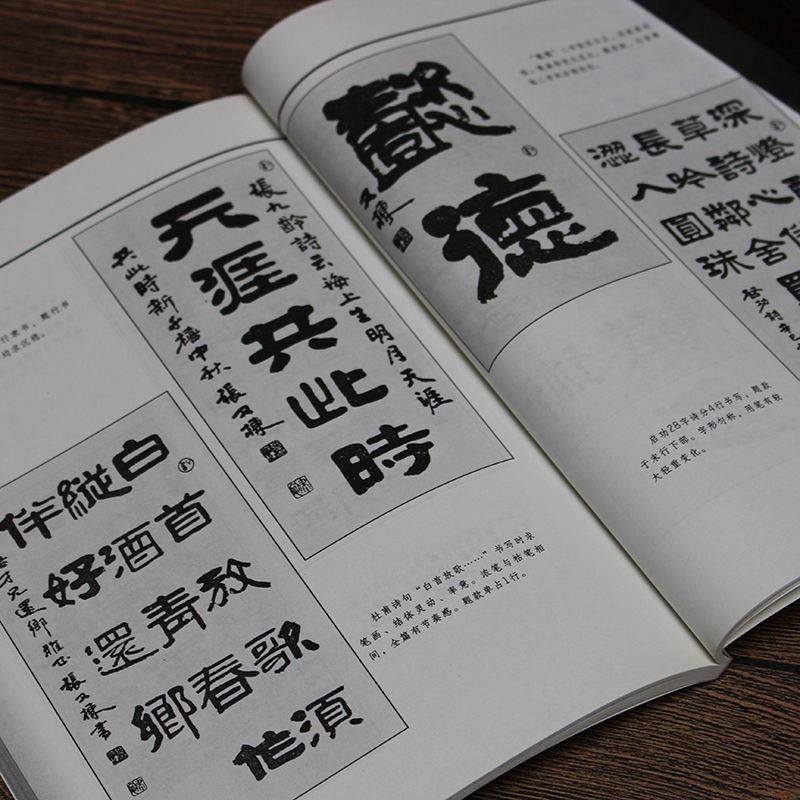 天涯共此時
張九齡詩云海上生明月天涯
共此時新千禧中秋張又棟
行隶书，题行书
白首放歌須
縱酒青春作
伴好還鄉
才兄還鄉雅正張又棟書
杜甫诗句“白首放歌……”书写时求
笔画、结体灵动、率意。浓笔与枯笔相
间，全篇有节奏感。题款单占1行。
懿德
又棟
深燈
草詩心信
長吟鄰舍
澀入圓珠
啓功詩辛巳
启功28字诗分4行书写，题款
于末行下部。字形匀称，用笔有较
大轻重变化。